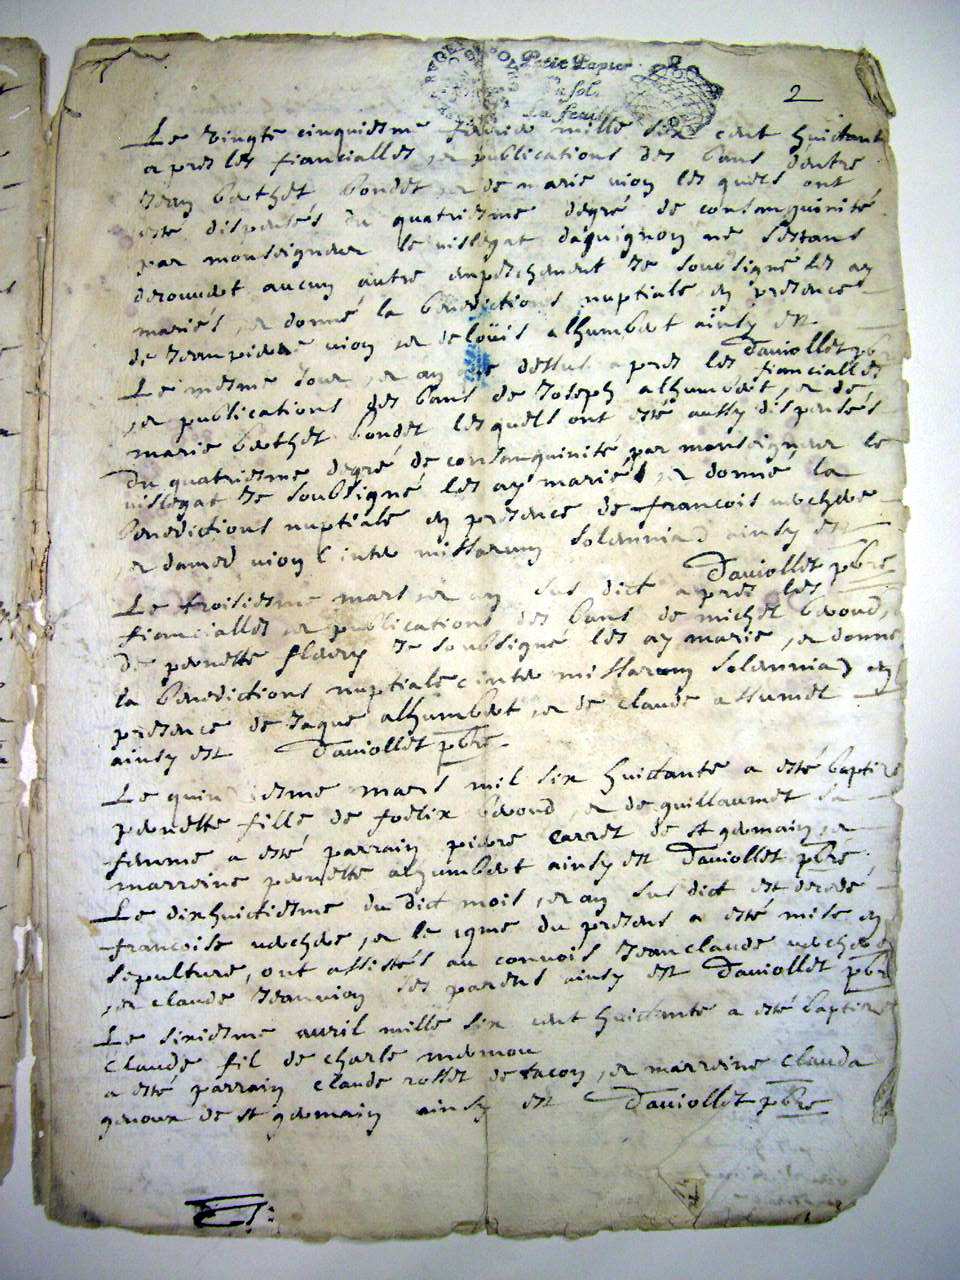 Petit Papier
La feuille
2
Le vingte cinquiesme feurier mille six cent huictante
apres les fiancialles er publications des bans dentre
Jean berthet bondet er de marie uion les quels ont
esté dispensés du quatriesme degré de consanguinité
par monseigneur le uislegat dauignon ne sestans
descouuert aucun autre empeschement Je soubsigné les ay
mariés er donné la benedictions nuptiale en presence
de Jeanpierre uion er de loüis alhumbert ainsy est
Dauiollet pbre
Le mesme Jour er an que dessus apres les fiancialles
er publications des bans de Joseph alhumbert er de
marie berthet bondet lesquels ont esté aussy dispensés
du quatriesme degré de consanguinité par monseigneur le
uislegat Je soubsigné les ay mariés er donné la
benedictions nuptiale en presence de francois uerchere
er damed uion (inter missarum solemnia) ainsy est
Dauiollet pbre
Le troisiesme mars er an sus dict apres les
fiancialles er publications des bans de michel beroud
De pernette fleury Je soubsigné les ay marie er donne
la benedictions nuptiale (inter missarum solemnia) en
presence de Jaque alhumbert er de claude assumel
ainsy est Dauiollet pbre.
Le quinsiesme mars mil six huictante a esté baptise
pernette fille de foelix beroud er de guillaumet sa
femme a esté parrain pierre carret de st germain er
marreine pernette alhumbert ainsy est Dauiollet pbre.
Le dixhuictiesme du dict mois er an sus dict est decedé
francoise uerchere er le 19me du presens a esté mise en
sepulture, ont assistés au conuois Jeanclaude uerchere
er claude Jeanuion ses parens ainsy est Dauiollet pbre
Le sixiesme auril mille six cent huictante a esté baptise
Claude fil de charle mermou
a esté parrain claude rosset de lacon er marreine clauda
genoux de st germain ainsy est Dauiollet pbre